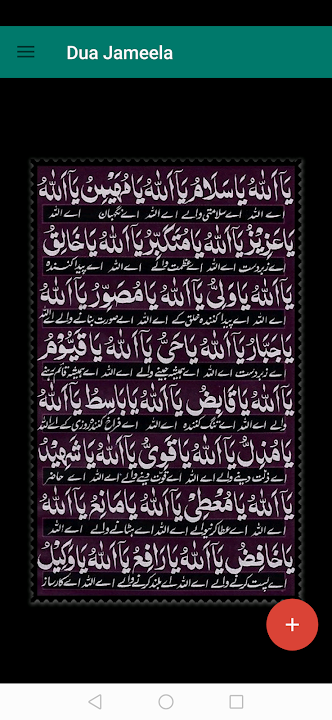 Dua Jameela
يَا اَللهُ يَا سَلَامُ يَا اَللهُ يَا مُهَيْمِنُ يَا اَللهُ
اے اللہ اے سلامتی والے اے اللہ اے نگہبان اے اللہ
يَا عَزِيْزُ يَا اَللهُ يَا مُتَكَبِّرُ يَا اَللهُ يَا خَالِقُ
اے زبردست اے اللہ اے عظمت والے اے اللہ اے پیدا کنندہ
يَا اَللهُ يَا وَلِيُّ يَا اَللهُ يَا مُصَوِّرُ يَا اَللهُ
اے اللہ اے پیدا کنندہ خلق کے اے اللہ اے صورت بنانے والے اے اللہ
يَا جَبَّارُ يَا اَللهُ يَا حَيُّ يَا اَللهُ يَا قَيُّوْمُ
اے زبردست اے اللہ اے ہمیشہ جینے والے اے اللہ اے ہمیشہ قائم رہنے
يَا اَللهُ يَا قَابِضُ يَا اَللهُ يَا بَاسِطُ يَا اَللهُ
والے اے اللہ اے تنگ کنندہ اے اللہ اے فراخ کنندہ روزی کے اے اللہ
يَا مُذِلُّ يَا اَللهُ يَا قَوِيُّ يَا اَللهُ يَا شَهِيْدُ
اے ذلت دینے والے اے اللہ اے قوت دینے والے اے اللہ اے حاضر
يَا اَللهُ يَا مُعْطِيْ يَا اَللهُ يَا مَانِعُ يَا اَللهُ
اے اللہ اے عطا کرنیوالے اے اللہ اے ہٹانے والے اے اللہ
يَا خَافِضُ يَا اَللهُ يَا رَافِعُ يَا اَللهُ يَا وَكِيْلُ
اے پست کرنے والے اے اللہ اے بلند کرنے والے اے اللہ اے کارساز